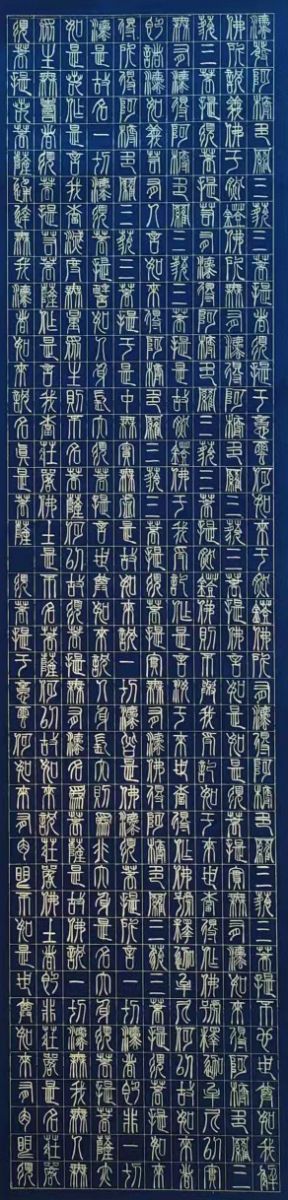 法發阿耨多羅三藐三菩提者須菩提于意云何如來于然鐙佛所有法得阿耨多羅三藐三菩提不也世尊如我解
佛所說義佛于然鐙佛所無有法得阿耨多羅三藐三菩提佛言如是如是須菩提實無有法如來得阿耨多羅三
藐三菩提須菩提若有法得阿耨多羅三藐三菩提然鐙佛則不與我受記汝于來世當得作佛號釋迦牟尼以實
無有法得阿耨多羅三藐三菩提是故然鐙佛與我受記作是言汝于來世當得作佛號釋迦牟尼何以故如來者
即諸法如義若有人言如來得阿耨多羅三藐三菩提須菩提實無有法佛得阿耨多羅三藐三菩提須菩提如來
所得阿耨多羅三藐三菩提于是中無實無虛是故如來說一切法皆是佛法須菩提所言一切法者即非一切
法是故名一切法須菩提譬如人身長大須菩提言世尊如來說人身長大則為非大身是名大身須菩提菩薩亦
如是若作是言我當滅度無量眾生則不名菩薩何以故須菩提無有法名為菩薩是故佛說一切法無我無人無
眾生無壽者須菩提若菩薩作是言我當莊嚴佛土是不名菩薩何以故如來說莊嚴佛土者即非莊嚴是名莊嚴
須菩提若菩薩通達無我法者如來說名真是菩薩 須菩提于意云何如來有肉眼不如是世尊如來有肉眼須